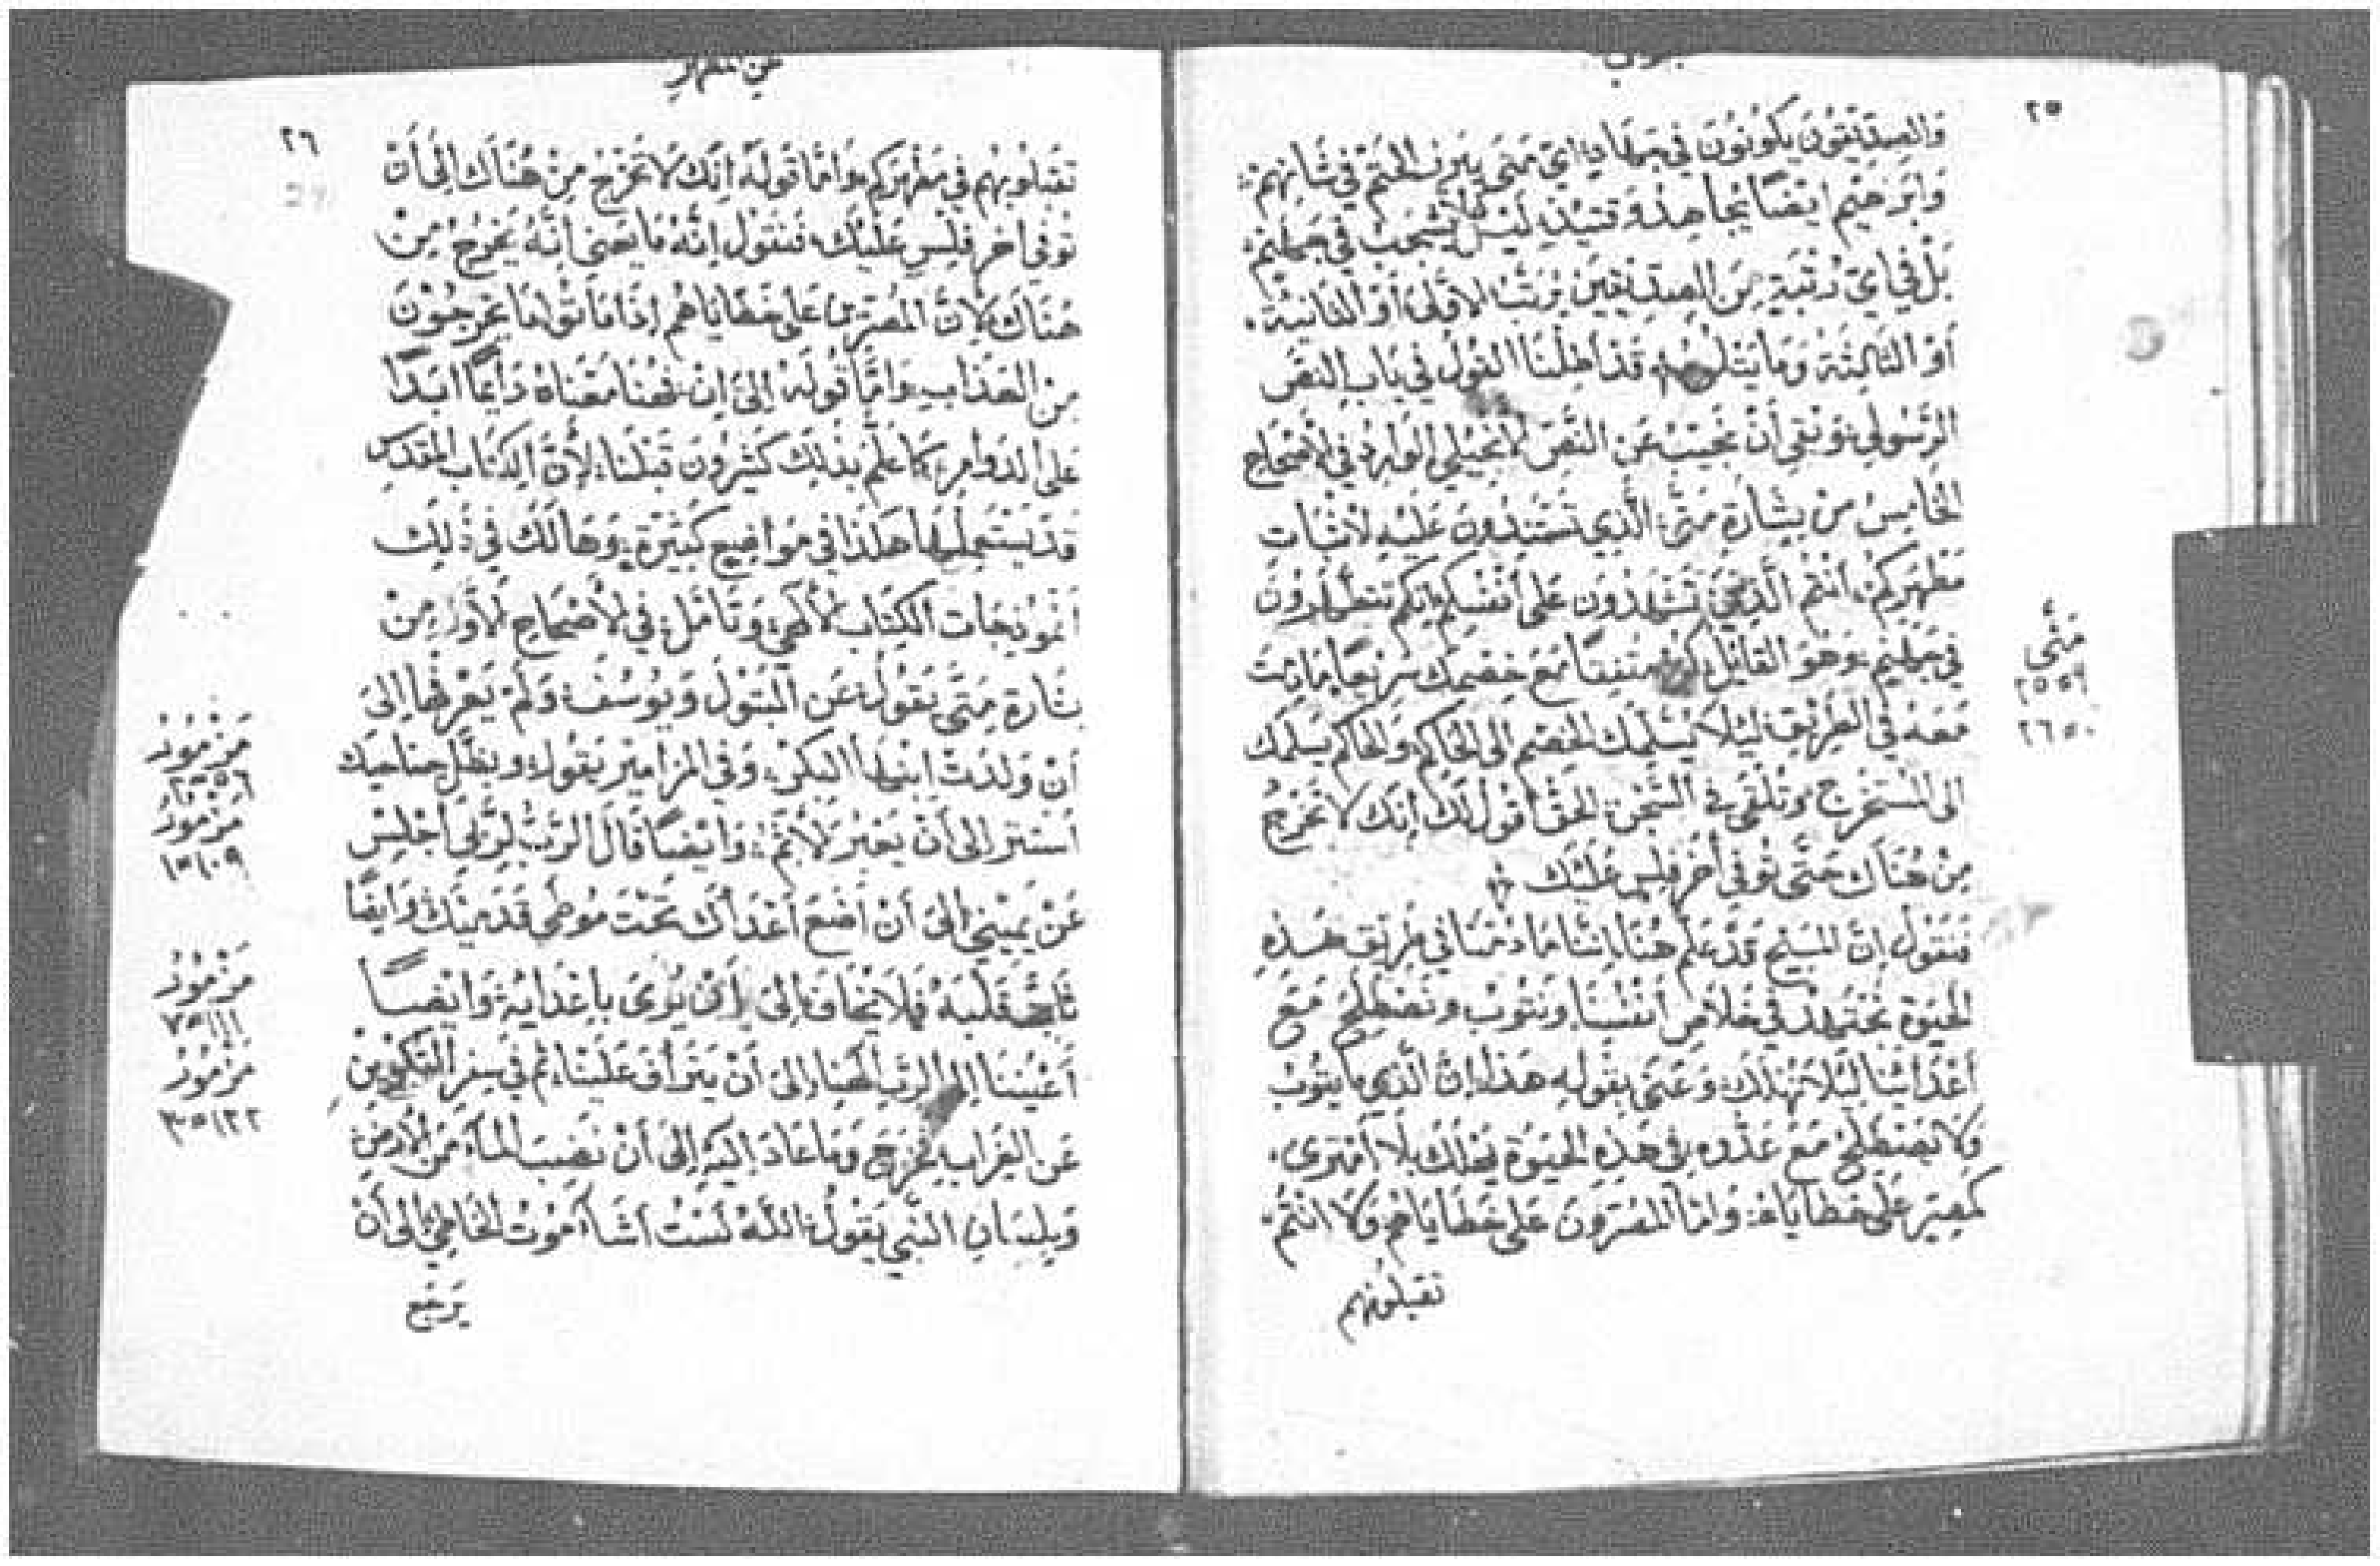 جوابي
٢٥
والصديقون يكونون في جهاد اي متى يبرز الحتم في شانهم:
وابرخيم ايضًا يجاهد وقتيذٍ ليس في جملتهم.
بل في اي رتبة من الصديقين يرتب الاولى أو الثانية.
أو الثالثة وما يتلوها قد اطلنا القول في باب النص
الرسولي، وبقي أن نجيب عن النص الانجيلي الوارد في الاصحاح
الخامس من بشارة متى، الذي تستندون عليه لاثبات
مطهركم، انتم الذين تشهدون على أنفسكم انكم تتطهرون
في وهو القايل كن متفقًا مع خصمك سريعًا ما دمت
معه في الطريق، ليلا يسلمك الخصم الى الحاكم والحاكم يسلمك
الى المستخرج وتلقى في السجن، الحق أقول لك انك لا تخرج
من هناك حتى توفي أخر فلس عليك
فنقول ان المسيح قد علم هنا اننا ما دمنا في طريق هذه
الحيوة نجتهد في خلاص أنفسنا ونتوب ونصطلح مع
أعدائنا ليلا نهلك، وعنى بقوله هذا ان الذي ما يتوب
ولا يصطلح مع عدوه في هذه الحيوة يهلك بلا امترى.
كمصر على خطاياه: واما المصرون على خطاياهم ولا انتم:
تقبلونهم
متى
٢٥٥٩
٢٦٥٠
عن المطهر
٢٦
تقبلونهم في مطهركم، واما قوله انك لا تخرج من هناك الى أن
توفي اخر فلس عليك، فنقول انه ما يعني أنه يخرج من
هناك لان المصرين على خطاياهم اذا ماتوا ما يخرجون
من العذاب، واما قوله الى ان، فهنا معناه دايمًا ابدًا
على الدوام، كما علم بذلك كثيرون قبلنا، لأن الكتاب المقدس
قد يستعملها هكذا في مواضيع كثيرة، وها لك في ذلك
انموذجات الكتاب الالهي، وتامل، في الاصحاح الاول من
بشارة متى يقول، عن البتول ويوسف، ولم يعرفها الى
أن ولدت ابنها البكر، وفي المزامير يقول، وبظل جناحيك
استتر الى أن يعبر الاثم، وايضًا قال الرب لربي أجلس
عن يميني الى أن أضع أعداك تحت موطي قدميك وايضًا
ثابت قلبه فلا يخاف الى أن يرى باعدايه، وايضًا
أعيننا الى الرب الهنا، الى أن يترأف علينا، ثم في سفر التكوين
عن الغراب، فخرج وما عاد اليه الى أن نضب الماء من الارض
وبلسان النبي يقول، الله لست اشاء موت الخاطي الى أن
يرجع
مزمور
٢٥٥٦
مزمور
١٥١٠٩
مزمور
٧٥١١١
مزمور
٣٥١٢٢